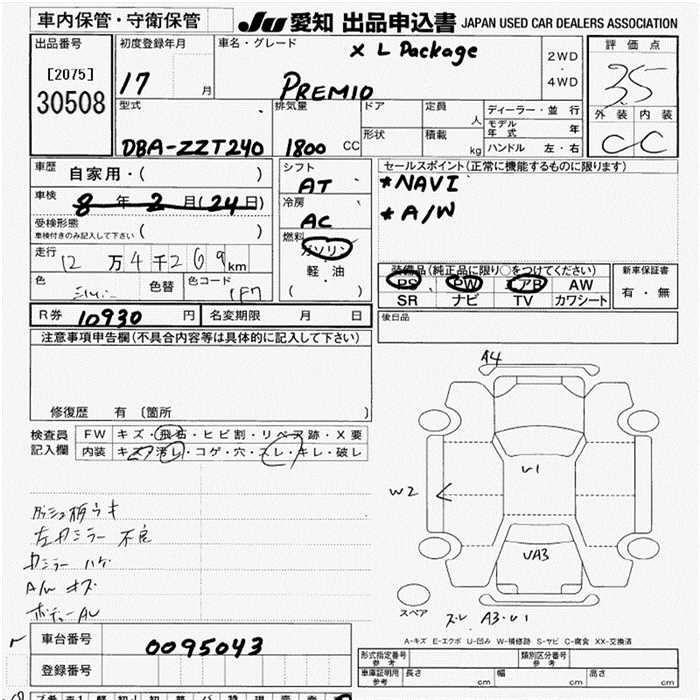 車内保管・守衛保管
JU 愛知 出品申込書 JAPAN USED CAR DEALERS ASSOCIATION
出品番号
[2075]
30508
初度登録年月
17 月
車名・グレード
X L Package
PREMIO
2WD
・
4WD
評価点
3.5
外装 内装
C C
型式
DBA-ZZT240
排気量
1800 CC
ドア
定員
人
形状
積載
kg
ディーラー・並行
モデル年式 年
ハンドル 左・右
車歴
自家用・( )
車検
8年2月(24日)
受検形態
車検付きのみ記入して下さい ( )
走行
12万4千269km
色
色替
色コード
1F7
シフト
AT
冷房
AC
燃料
ガソリン
軽・油
( )
セールスポイント(正常に機能するものに限ります)
*NAVI
*A/W
装備品(純正品に限り○をつけてください)
PS PW エアB AW
SR ナビ TV カワシート
新車保証書
有・無
R券 10930 円
名変期限 月 日
後日品
注意事項申告欄(不具合内容等は具体的に記入して下さい)
修復歴 有 〔箇所 〕
検査員
記入欄
FW キズ・飛石・ヒビ割・リペア跡・X要
内装 キズ・汚レ・コゲ・穴・スレ・キレ・破レ
左カラー 不良
A/W キズ
A4
U1
W2
UA3
スペア
ズレ A3・U1
A-キズ E-エクボ U-凹み W-補修跡 S-サビ C-腐食 XX-交換済
車台番号
0095043
登録番号
形式指定番号
参考
類別区分番号
参考
車庫証明用
参考
長さ cm
幅 cm
高さ cm